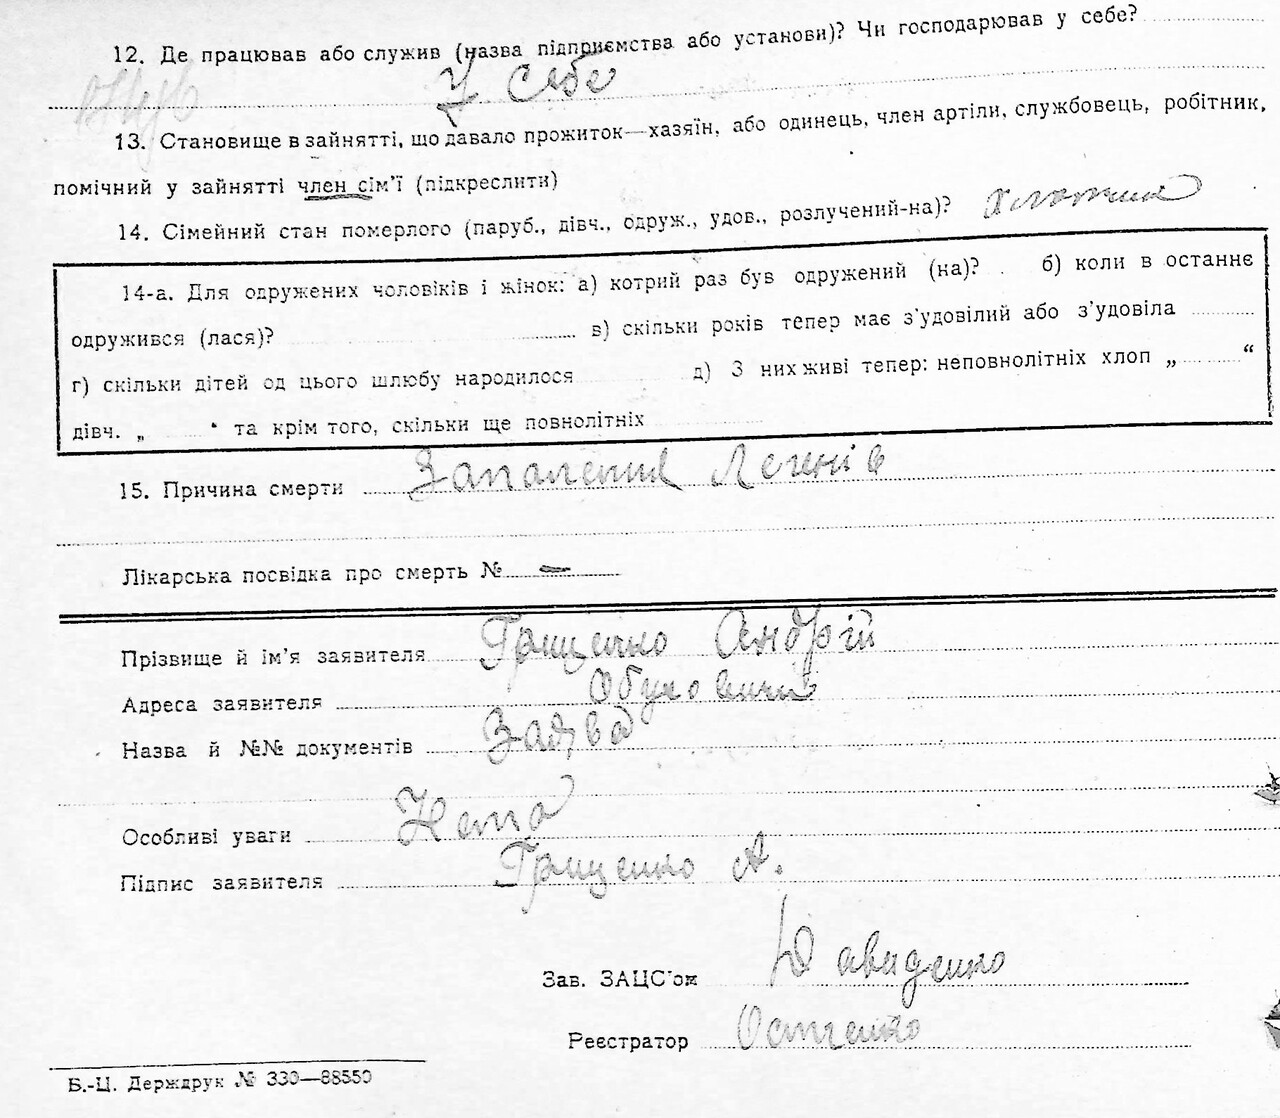 12. Де працював або служив (назва підприємства або установи)? Чи господарював у себе?
У себе
13. Становище в зайнятті, що давало прожиток—хазяїн, або одинець, член артіли, службовець, робітник,
помічний у зайнятті член сім'ї (підкреслити)
14. Сімейний стан померлого (паруб., дівч., одруж., удов., розлучений-на)?
14-а. Для одружених чоловіків і жінок: а) котрий раз був одружений (на)? б) коли в останнє
одружився (лася)? в) скільки років тепер має з'удовілий або з'удовіла
г) скільки дітей од цього шлюбу народилося д) З них живі тепер: неповнолітніх хлоп „ “
дівч. „ “ та крім того, скільки ще повнолітніх
15. Причина смерти Запалення Легенів
Лікарська посвідка про смерть № —
Прізвище й ім'я заявителя Грищенко Андрій
Адреса заявителя Обуховичі
Назва й №№ документів Заява
Особливі уваги Нема
Підпис заявителя Грищенко А.
Зав. ЗАЦС'ом Давиденко
Реєстратор Остенко
Б.-Ц. Держдрук № 330—88550